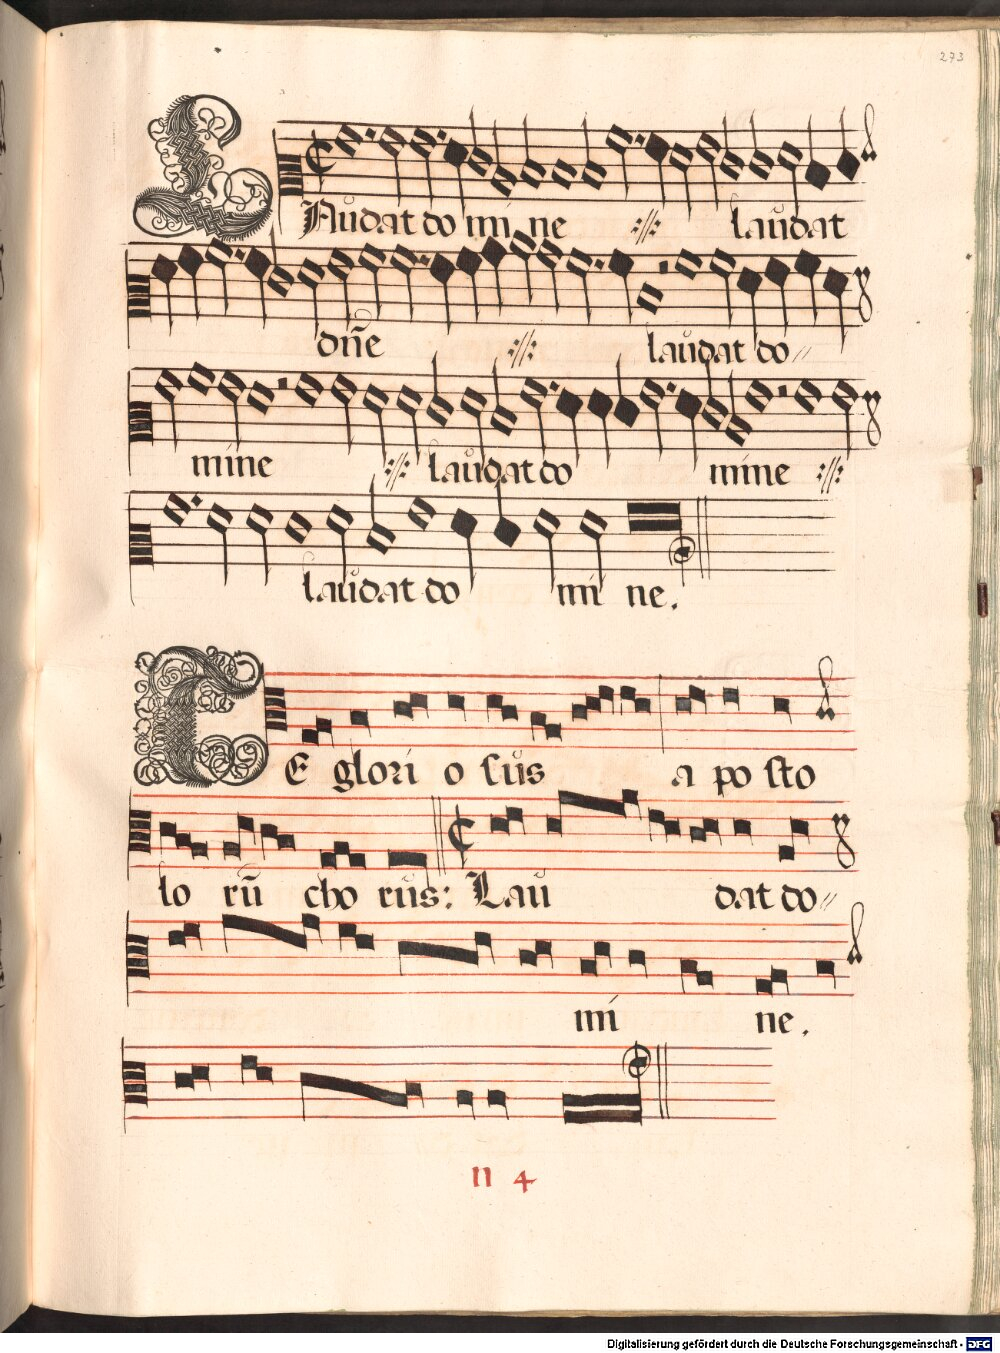 273
LAudat do mi ne laudat
dñe laudat do
mine laudat do mine
laudat do mi ne.
TE glori o sus a po sto
lo rũ cho rus: Lau dat do
mi ne.
n 4
Digitalisierung gefördert durch die Deutsche Forschungsgemeinschaft - DFG